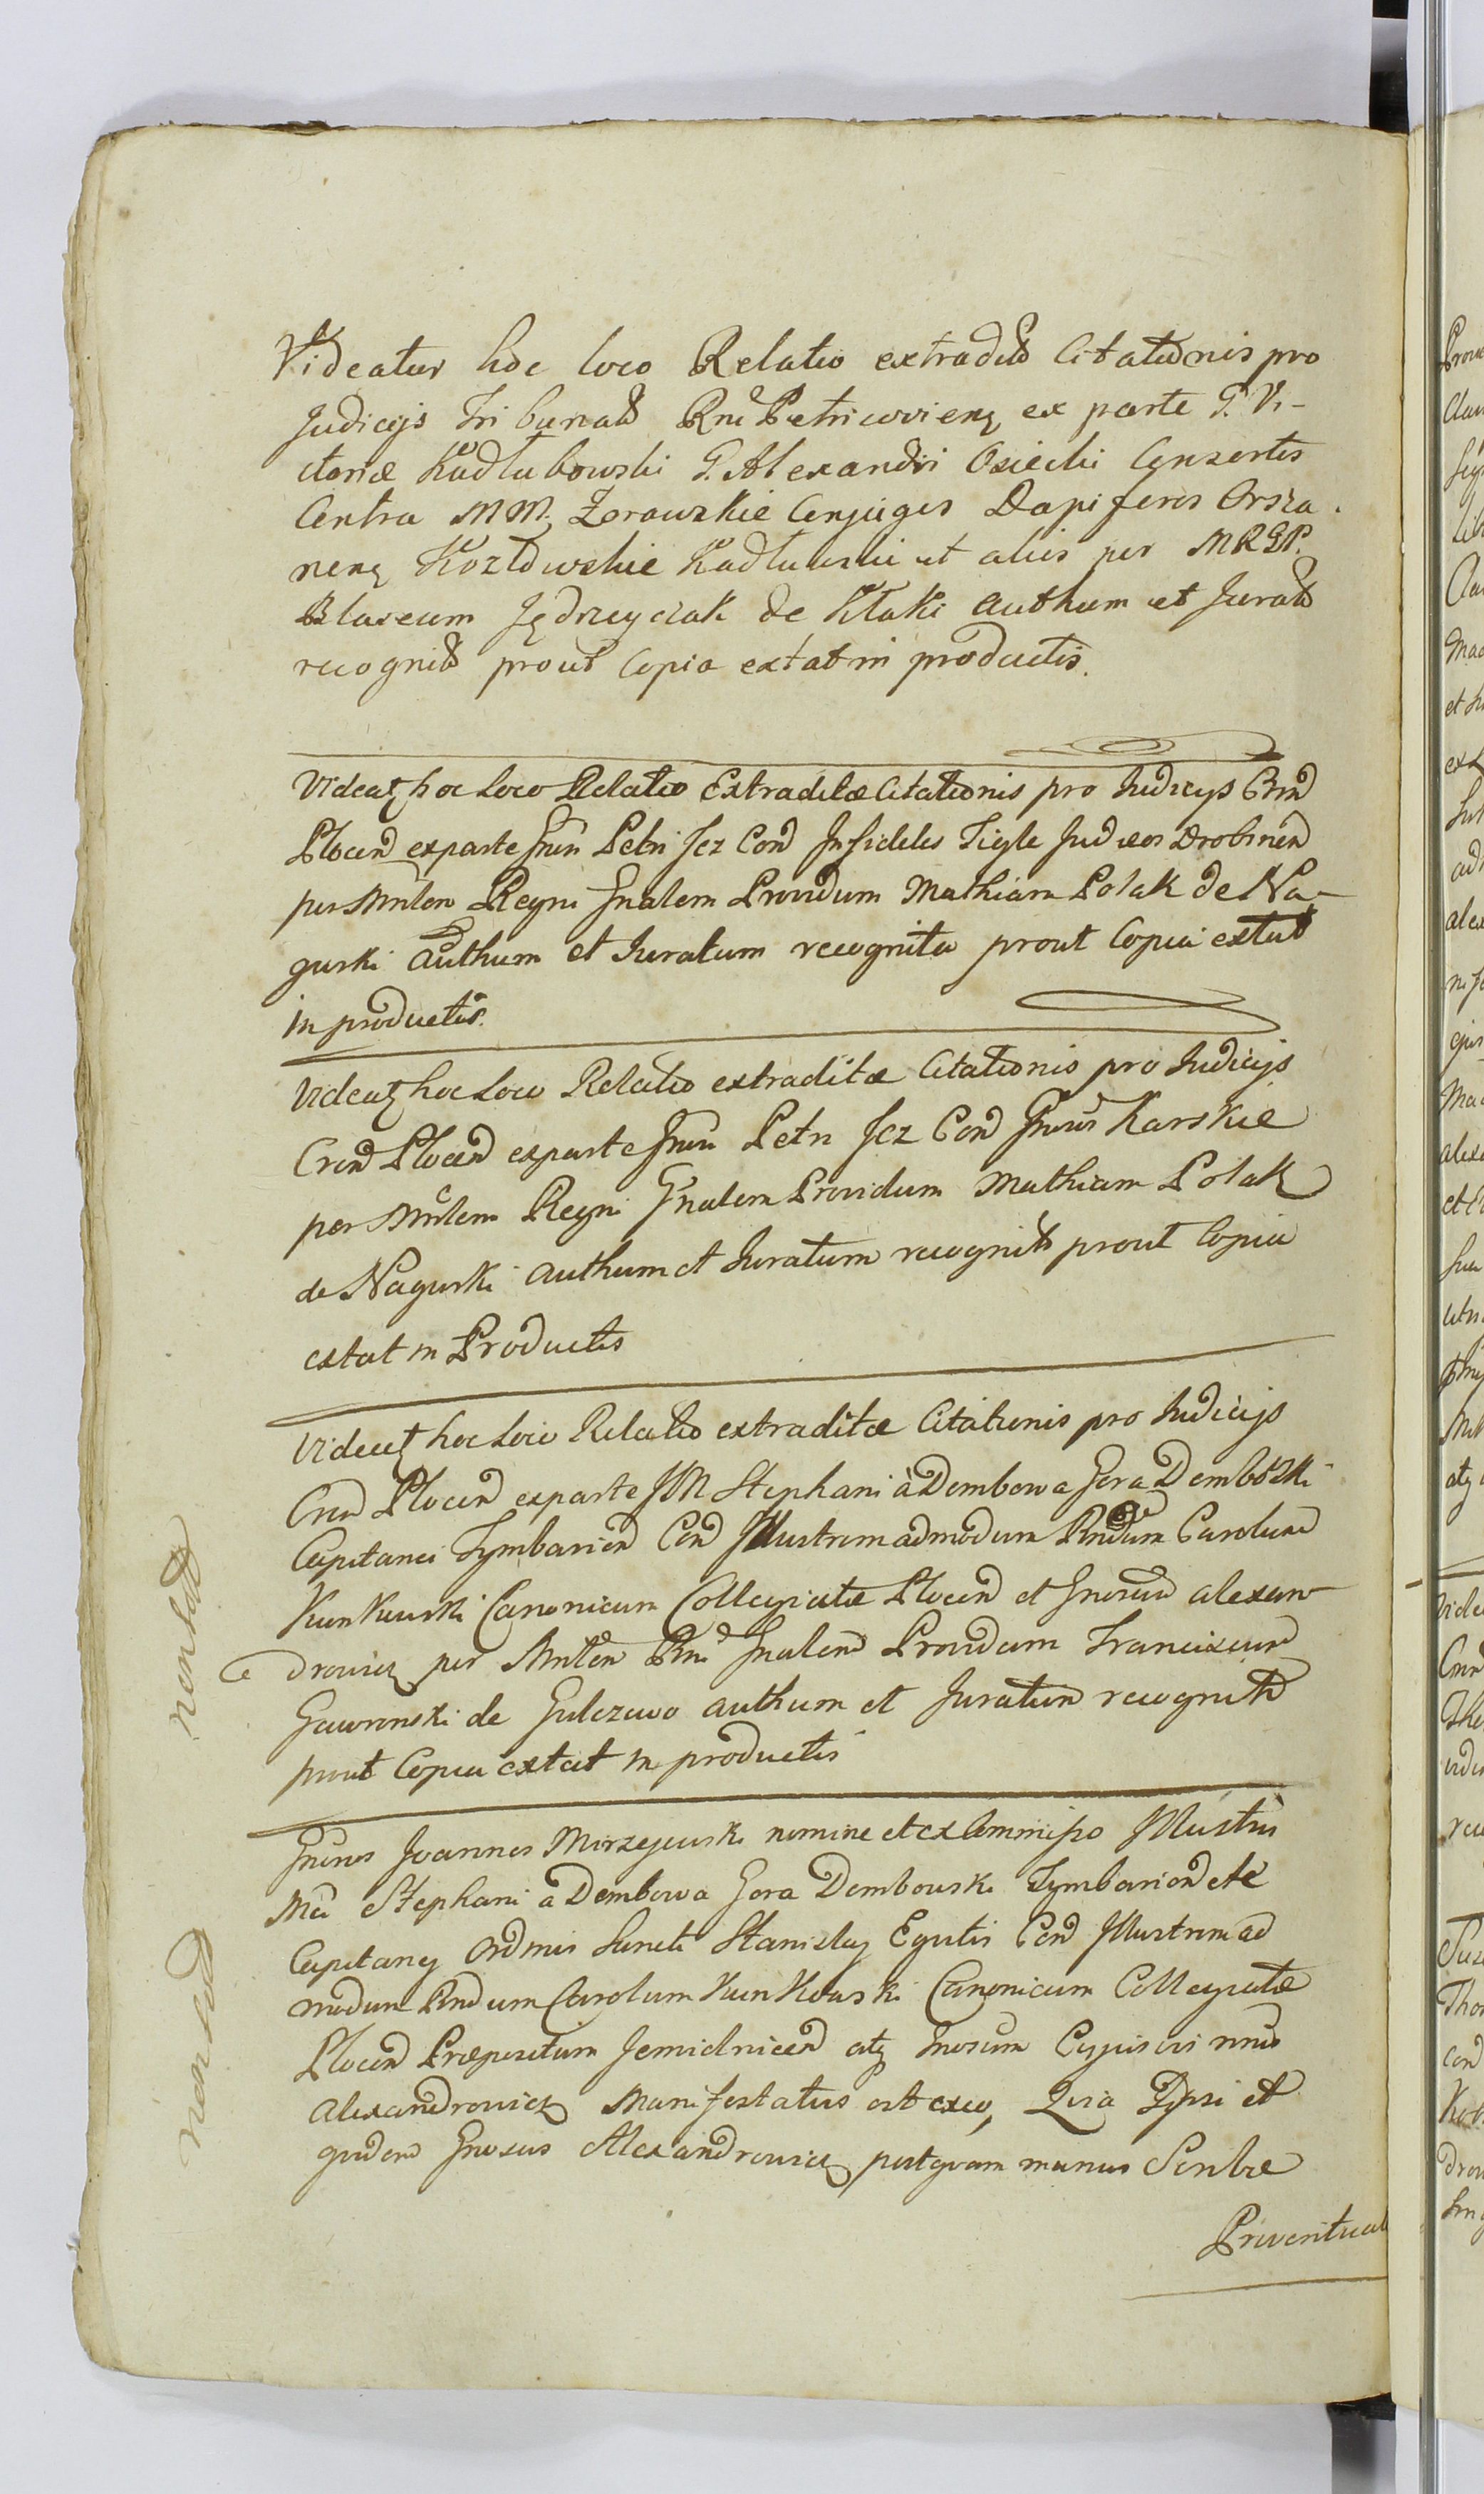 Videatur hoc loco Relatio extradit Citationis pro
Judicijs Tribunal Rni Petricovien ex parte G. Vi-
ctoriæ Kadłubowski G. Alexandri Osiecki Consortis
Contra MM. Zorawskie Conjuges Dapiferos Orsza-
nen Kozłowskie Kadłubski et alios per MRGP.
Blasium Jędrzeyczak de Kłaki Authum et Jurat
recognit prout Copia extat in productis.
Videat hoc Loco Relatio Extraditæ Citationis pro Judicijs Cren
Plocen ex parte Gnri Petri Jez Con Infideles Judæos Drobinen
per Mnlem Regni Gnalem Providum Mathiam Polak de Na-
gurki Authum et Juratum recognita prout Copia extat
in productis.
Videat hoc Loco Relatio extraditæ Citationis pro Judicijs
Cren Plocen ex parte Gnri Petri Jez Con Gnros Karskie
per Mnlem Regni Gnalem Providum Mathiam Polak
de Nagurki Authum et Juratum recognit prout Copia
extat in Productis
Videat hoc Loco Relatio extraditæ Citationis pro Judicijs
Cren Plocen ex parte JM Stephani à Dembowa Gora Dembowski
Capitanei Tymbarien Con Illustrem admodum Rndum Carolum
Kunkurski Canonicum Collegiatæ Plocen et Gnosum Alexan-
drowicz per Mnlem Rni Gnalem Providum Franciscum
Gawronski de Gulczewo authum et Juratum recognit
prout Copia extat in productis
Gnrus Joannes Mierzejewski nomine et ex Commisso Illustris
Mci Stephani a Dembowa Gora Dembowski Tymbarien etc
Capitanej Ordinis Sancti Stanislaj Equitis Con Illustrem ad
modum Rndum Carolum Kunkowski Canonicum Collegiatæ
Plocen Præpositum Jemielnicen atq Gnosum
Alexandrowicz Manifestatus est ex eo, Quia Ipsi et
quidem Gnosus Alexandrowicz postquam munus Scribæ